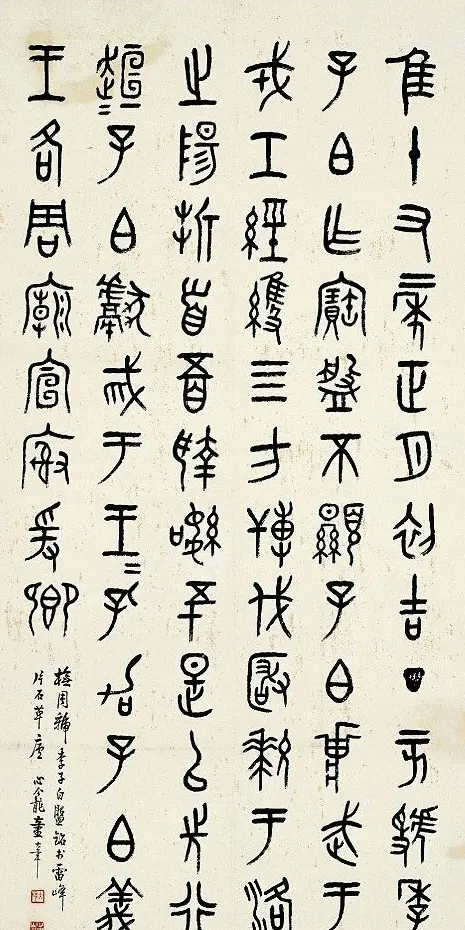 隹十又二年正月初吉丁亥虢季
子白乍寶盤不顯子白壯武于
戎工經維四方搏伐玁狁于洛
之陽折首五百執訊五十是以先行
趄〓子白獻馘于王〓孔加子白義
王各周廟宣榭爰卿
橅周虢季子白盤銘於雷峰
片石草廬 心龕童大年